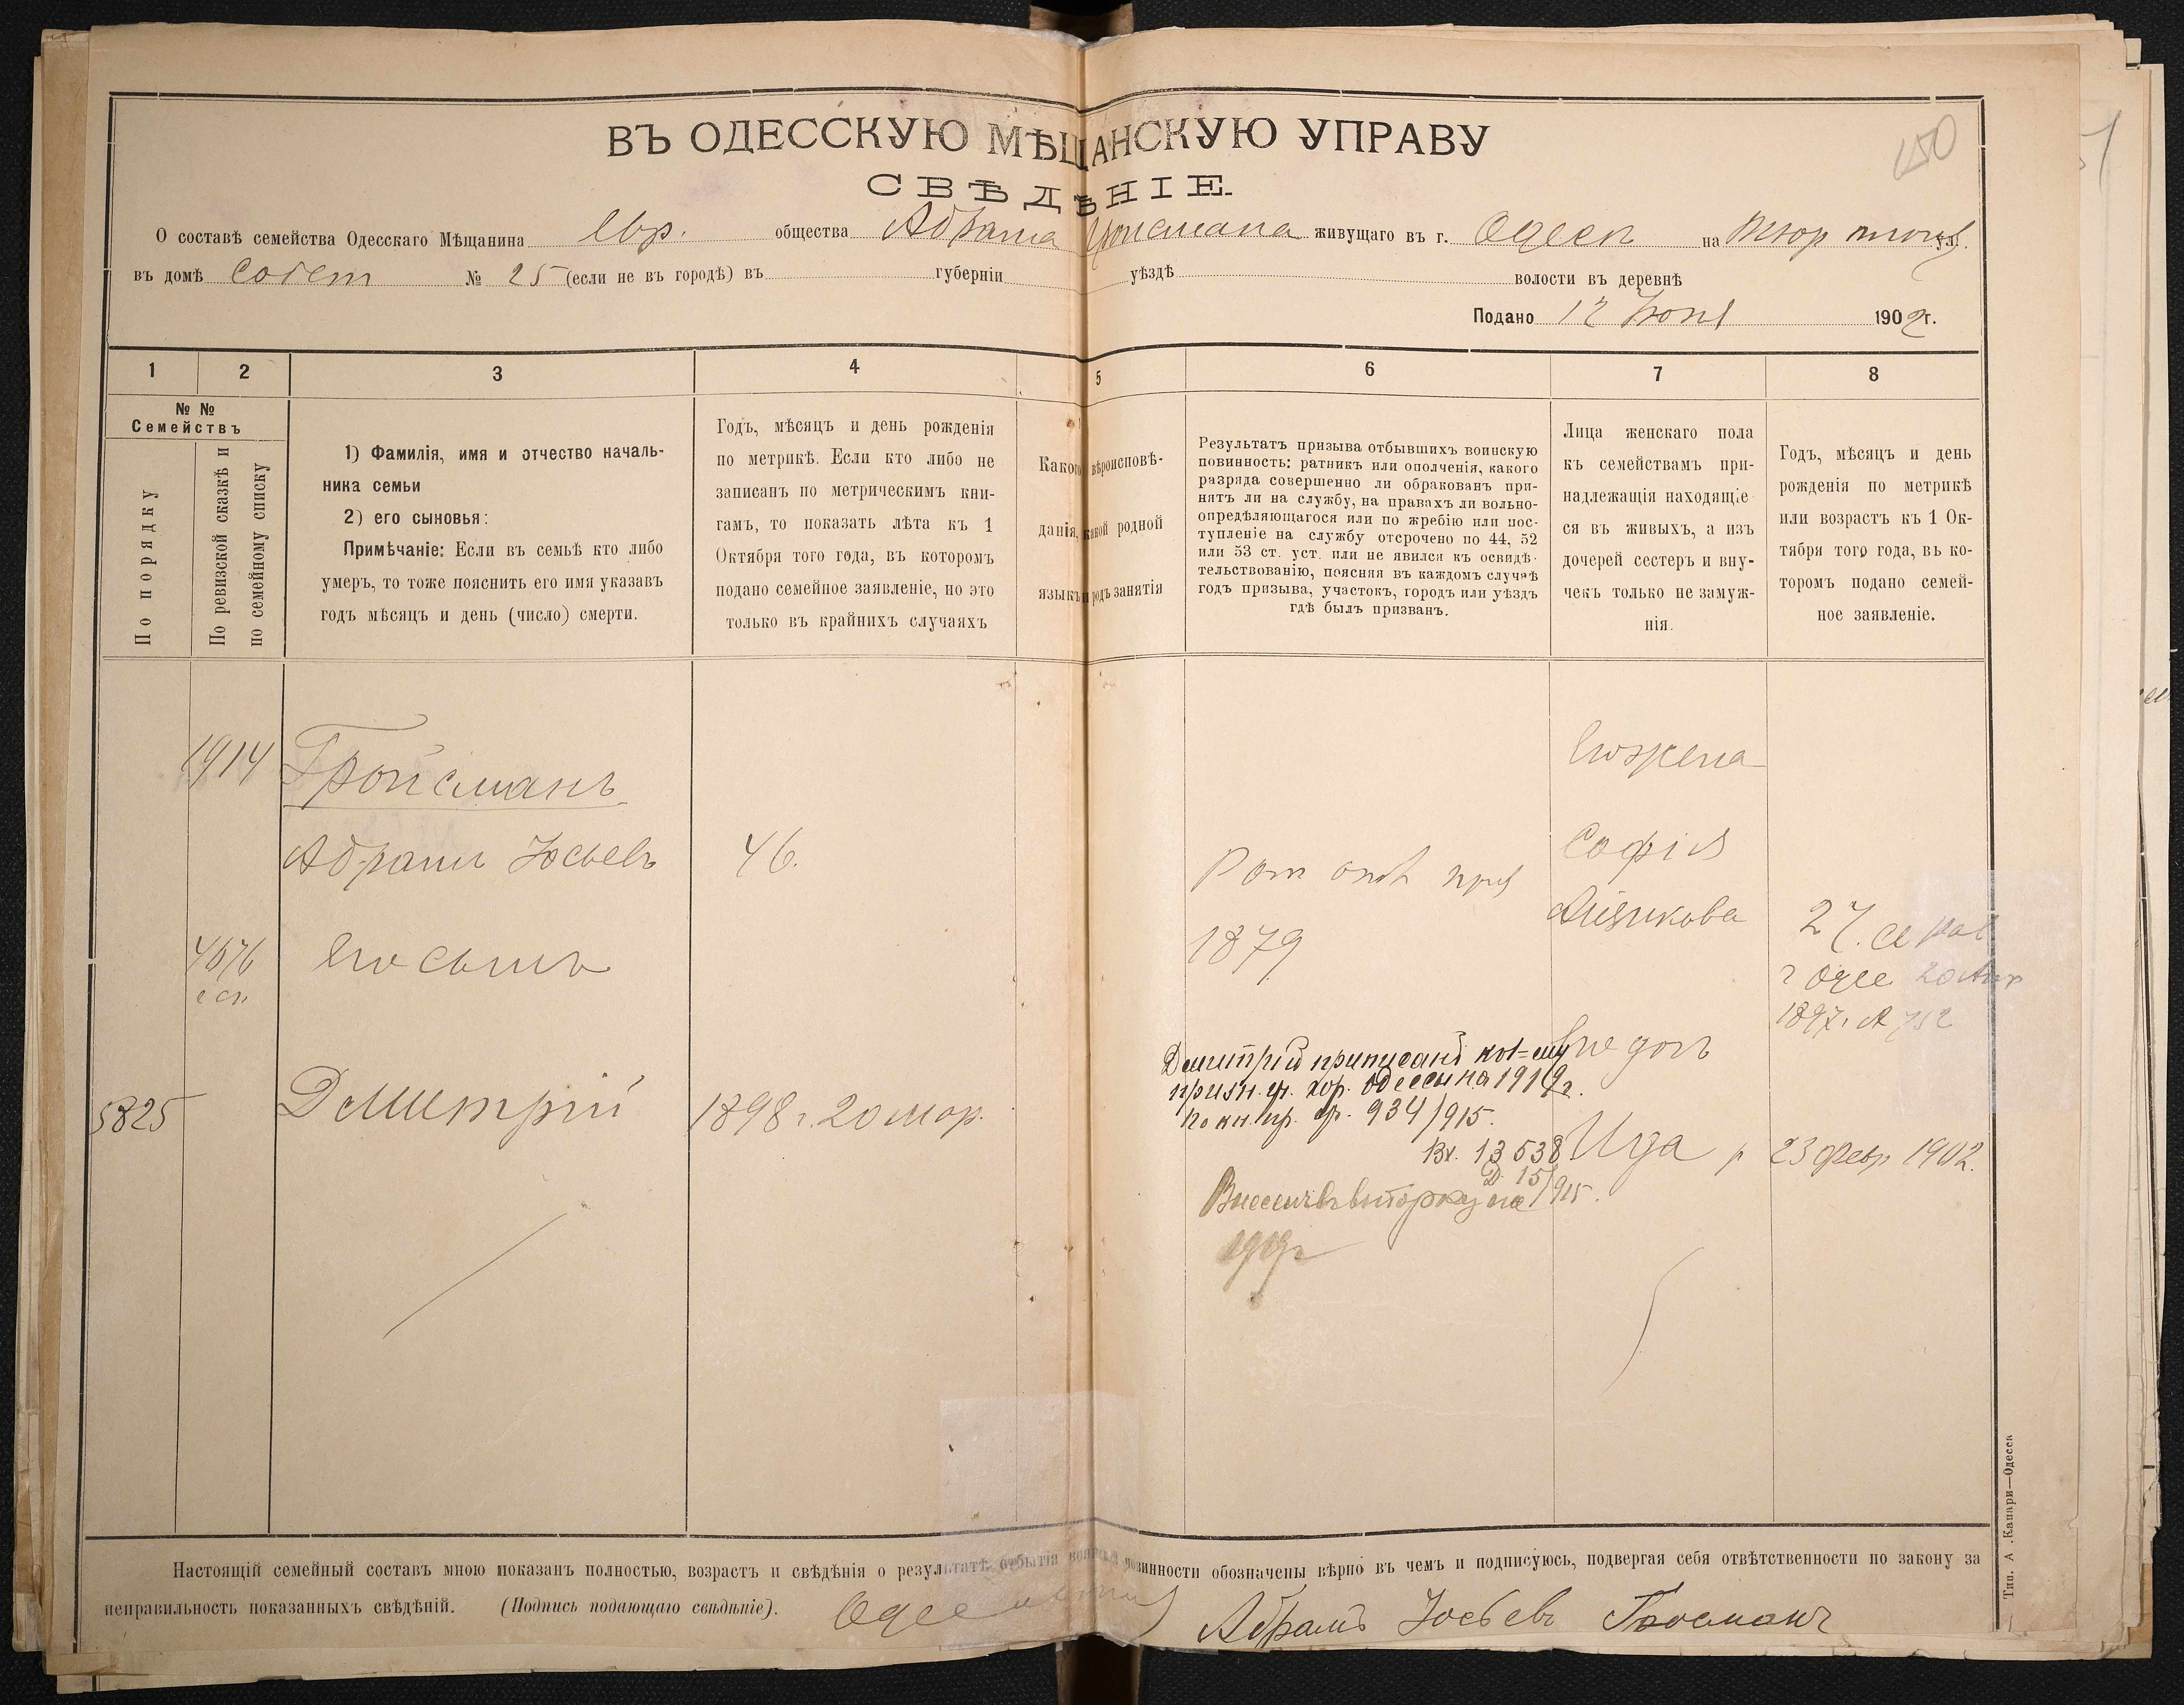 150
ВЪ ОДЕССКУЮ МѢЩАНСКУЮ УПРАВУ
СВѢДѢНІЕ.
О составѣ семейства Одесскаго Мѣщанина Евр. общества Абрама Гройсмана живущаго въ г. Одессѣ на ул.
въ домѣ Собст № 25 (если не въ городѣ) въ губерніи уѣздѣ волости въ деревнѣ
Подано 12 Іюня 1902 г.
1 2 3 4 5 6 7 8
№ №
Семействъ
По порядку
По ревизской сказкѣ и
по семейному списку
1) Фамилія, имя и отчество началь-
ника семьи
2) его сыновья:
Примѣчаніе: Если въ семьѣ кто либо
умеръ, то тоже пояснить его имя указавъ
годъ мѣсяцъ и день (число) смерти.
Годъ, мѣсяцъ и день рожденія
по метрикѣ. Если кто либо не
записанъ по метрическимъ кни-
гамъ, то показать лѣта къ 1
Октября того года, въ которомъ
подано семейное заявленіе, но это
только въ крайнихъ случаяхъ
Какого вѣроисповѣ-
данія, какой родной
языкъ и родъ занятія
Результатъ призыва отбывшихъ воинскую
повинность: ратникъ или ополченія, какого
разряда совершенно ли обракованъ при-
нятъ ли на службу, на правахъ ли вольно-
опредѣляющагося или по жребію или пос-
тупленіе на службу отсрочено по 44, 52
или 53 ст. уст. или не явился къ освидѣ-
тельствованію, поясняя въ каждомъ случаѣ
годъ призыва, участокъ, городъ или уѣздъ
гдѣ былъ призванъ.
Лица женскаго пола
къ семействамъ при-
надлежащія находящіе
ся въ живыхъ, а изъ
дочерей сестеръ и вну-
чекъ только не замуж-
нія.
Годъ, мѣсяцъ и день
рожденія по метрикѣ
или возрастъ къ 1 Ок-
тября того года, въ ко-
торомъ подано семей-
ное заявленіе.
1914 Гройсманъ Его жена
Абрамъ Іосьевъ 46. Софія
Рат опол приз
1879
27.
4676 Его сынъ
г Одес 20 Апр
1897 г. № 752
Его доч
Дмитрій приписанъ къ 1-му
приз. уч. гор. Одессы на 1919 г.
по кн. пр. ф. 934/915.
5825 Дмитрій 1898 г. 20 мар.
Вх. 13538
Д. 15/915.
Ида р 23 февр 1902.
Внесенъ въ выборку на
1919 г
Настоящій семейный составъ мною показанъ полностью, возрастъ и свѣдѣнія о результатѣ отбытія воинской повинности обозначены вѣрно въ чемъ и подписуюсь, подвергая себя отвѣтственности по закону за
неправильность показанныхъ свѣдѣній. (Подпись подающаго свѣдѣніе).
Абрамъ Іосьевъ Гройсманъ
Тип. А. Канари—Одесса